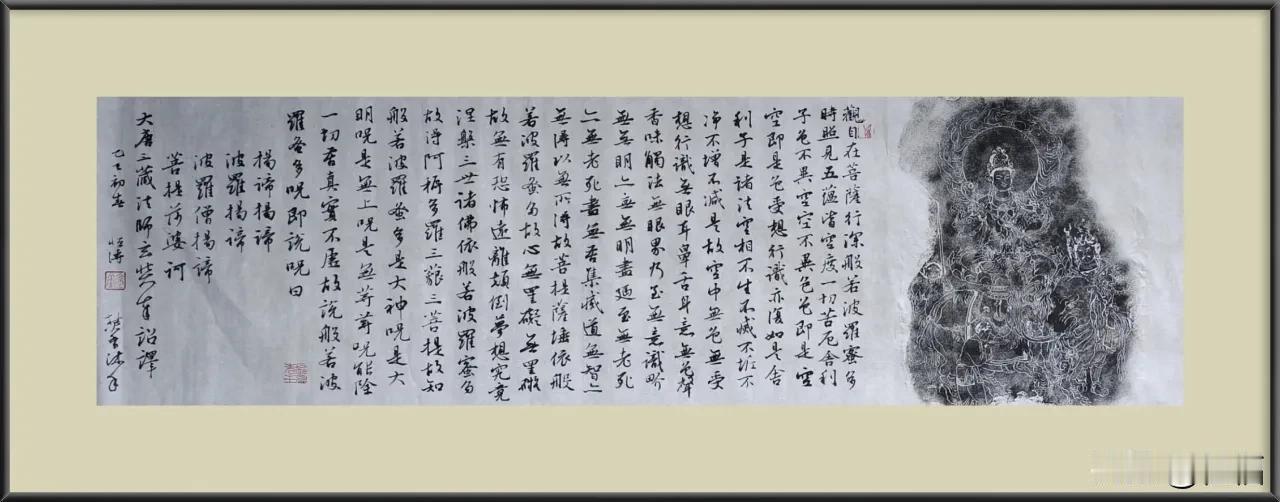 觀自在菩薩行深般若波羅蜜多
時照見五蘊皆空度一切苦厄舍利
子色不異空空不異色色即是空
空即是色受想行識亦復如是舍
利子是諸法空相不生不滅不垢不
净不增不减是故空中無色無受
想行識無眼耳鼻舌身意無色聲
香味觸法無眼界乃至無意識界
無無明亦無無明盡廼至無老死
亦無老死盡無苦集滅道無智亦
無得以無所得故菩提薩埵依般
若波羅蜜多故心無罣礙無罣礙
故無有恐怖遠離顛倒夢想究竟
涅槃三世諸佛依般若波羅蜜多
故得阿耨多羅三藐三菩提故知
般若波羅蜜多是大神呪是大
明呪是無上呪是無等等呪能除
一切苦真實不虛故說般若波
羅蜜多呪即說呪曰
揭諦揭諦
波羅揭諦
波羅僧揭諦
菩提薩婆訶
大唐三藏法師玄奘奉詔譯
乙巳初春